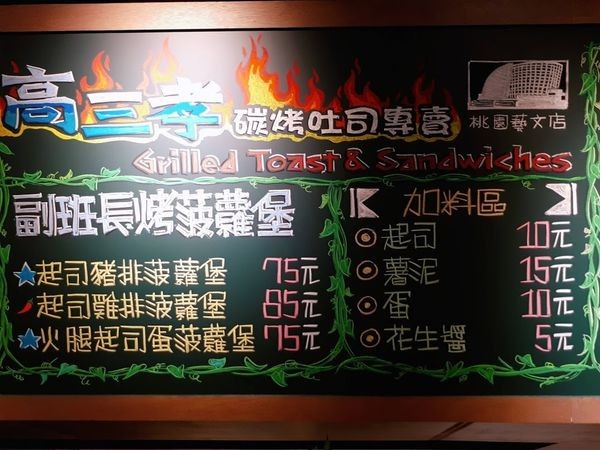 高三孝碳烤吐司專賣
桃園藝文店
Grilled Toast & Sandwiches
副班長烤菠蘿堡
起司豬排菠蘿堡 75元
起司雞排菠蘿堡 85元
火腿起司蛋菠蘿堡 75元
加料區
起司 10元
薯泥 15元
蛋 10元
花生醬 5元